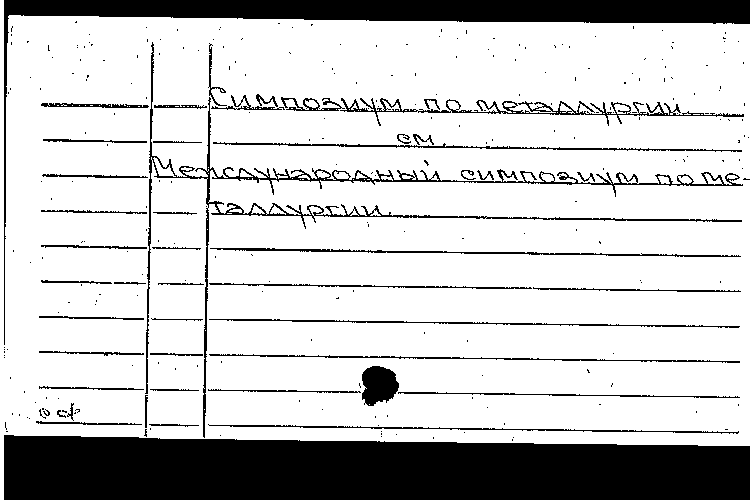 Симпозиум по металлургии
см.
Международный симпозиум по ме-
таллургии.